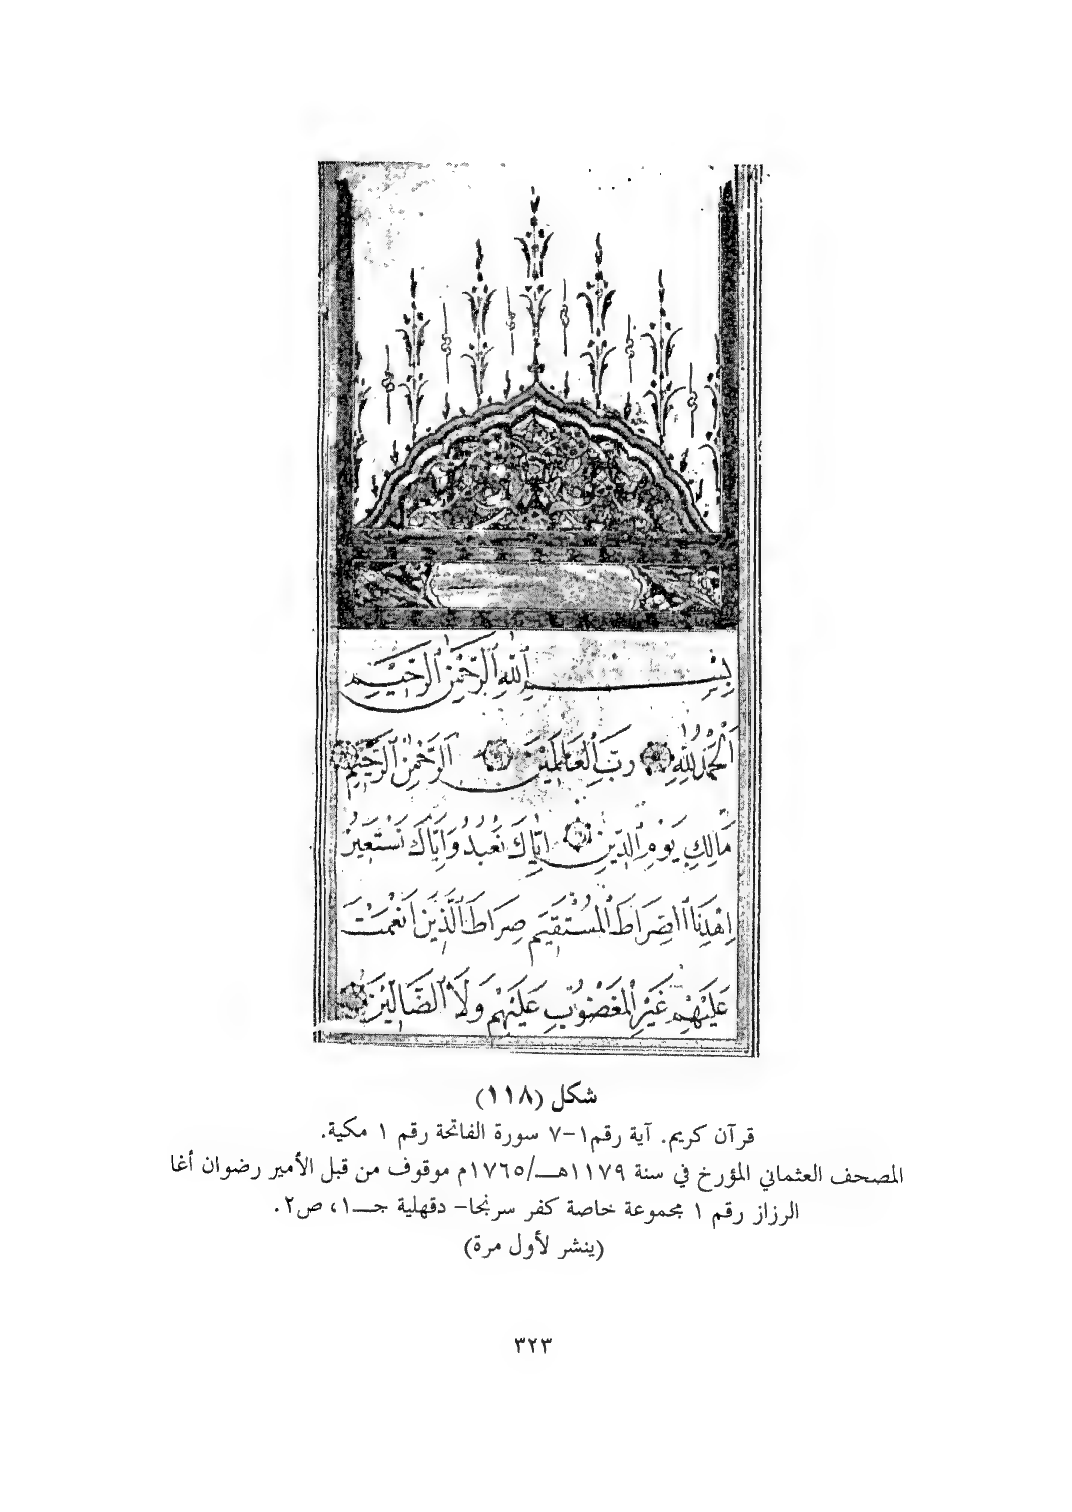 بِسْمِ اللَّهِ الرَّحْمٰنِ الرَّحِيمِ
اَلْحَمْدُ لِلّٰهِ رَبِّ الْعَالَمِينَ اَلرَّحْمٰنِ الرَّحِيمِ
مَالِكِ يَوْمِ الدِّينِ اِيَّاكَ نَعْبُدُ وَاِيَّاكَ نَسْتَعِينُ
اِهْدِنَا الصِّرَاطَ الْمُسْتَقِيمَ صِرَاطَ الَّذِينَ اَنْعَمْتَ
عَلَيْهِمْ غَيْرِ الْمَغْضُوبِ عَلَيْهِمْ وَلَا الضَّالِّينَ
شكل (١١٨)
قرآن كريم. آية رقم١-٧ سورة الفاتحة رقم ١ مكية.
المصحف العثماني المؤرخ في سنة ١١٧٩هــ/١٧٦٥م موقوف من قبل الأمير رضوان أغا
الرزاز رقم ١ مجموعة خاصة كفر سرنجا- دقهلية جــ١، ص٢.
(ينشر لأول مرة)
٣٢٣